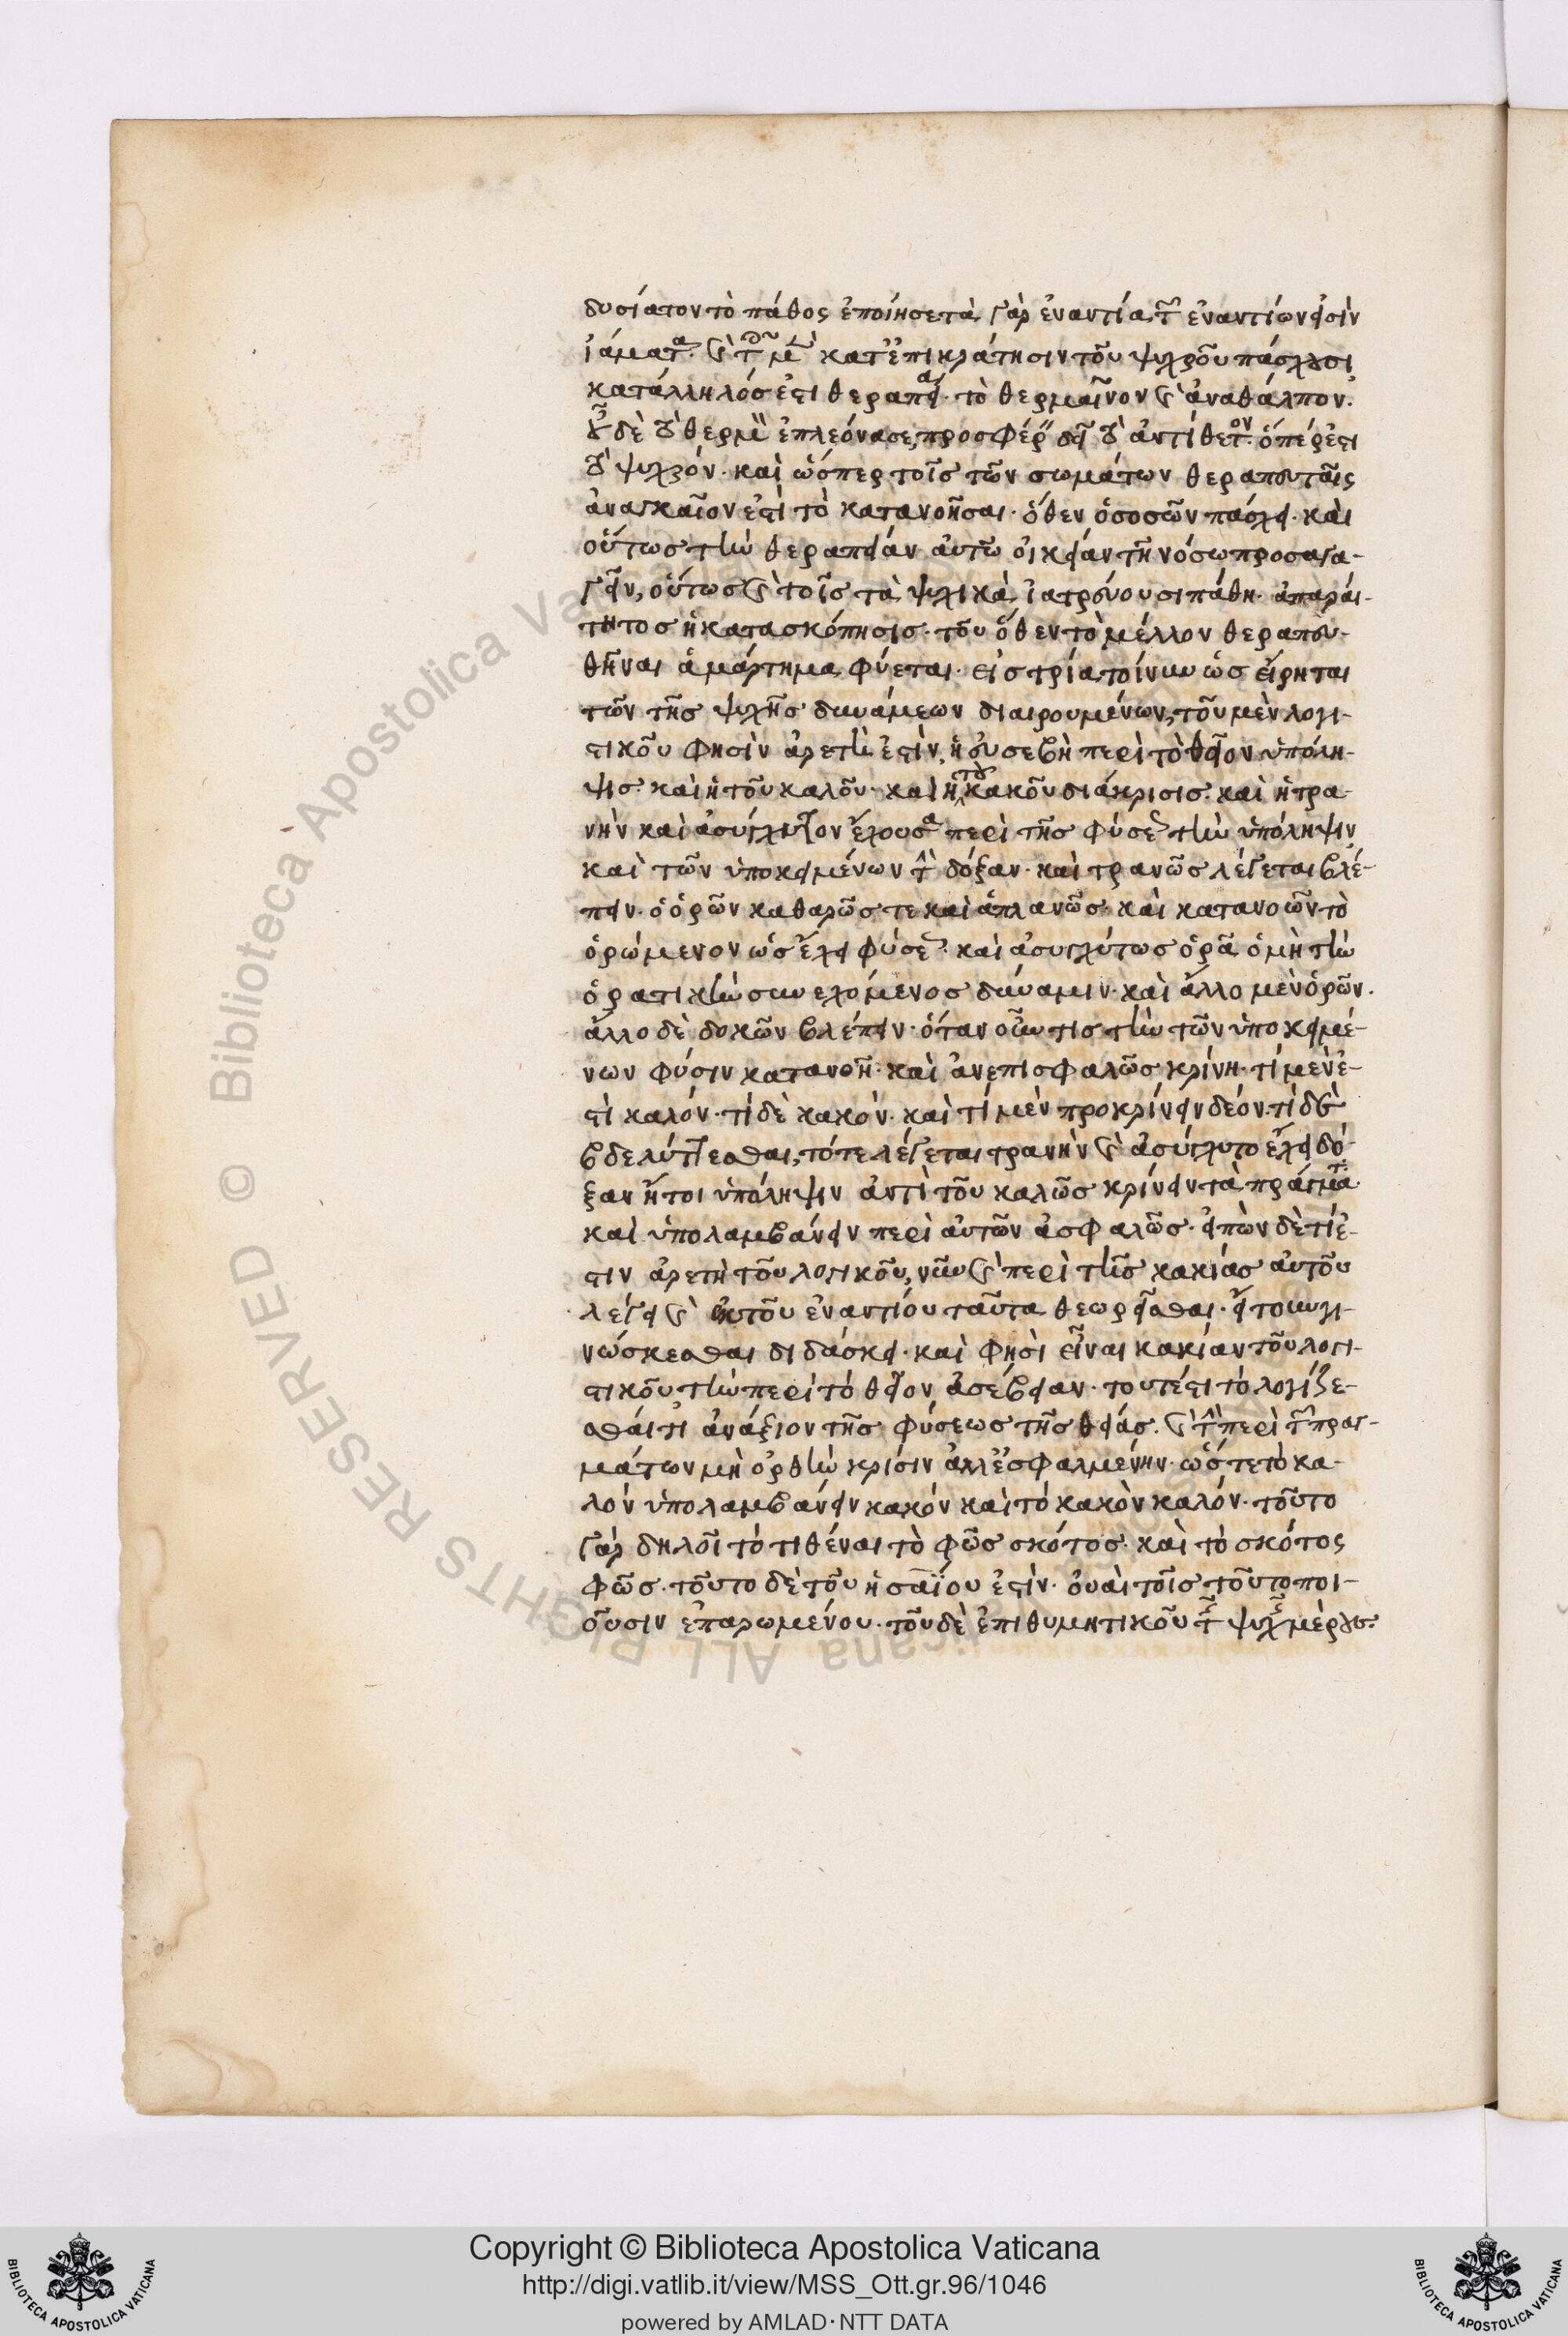 δυσίατον τὸ πάθος ἐποίησε τὰ γὰρ ἐναντία τῶν ἐναντίων εἰσὶν
ἰάματα. καὶ τοῦ μὲν κατ' ἐπικράτησιν τοῦ ψυχροῦ πάσχουσι
κατάλληλός ἐστι θεραπεία· τὸ θερμαῖνον καὶ ἀναθάλπον.
οὗ δὲ τὸ θερμὸν ἐπλεόνασε, προσφέρειν δεῖ τὸ ἀντίθετον. ὅπέρ ἐστι
τὸ ψυχρόν. καὶ ὥσπερ τοῖς τῶν σωμάτων θεραπευταῖς
ἀναγκαῖον ἐστὶ τὸ κατανοῆσαι. ὅθεν ὁ νοσῶν πάσχει. καὶ
οὕτως τὴν θεραπείαν αὐτῶ οἰκείαν τῆ νόσω προσαγα-
γεῖν, οὕτως καὶ τοῖς τὰ ψυχικὰ ἰατρεύουσι πάθη. ἀπαραί-
τητος ἡ κατασκόπησις. τοῦ ὅθεν τὸ μέλλον θεραπευ-
θῆναι ἁμάρτημα φύεται. εἰς τρία τοίνυν ὡς εἴρηται
τῶν τῆς ψυχῆς δυνάμεων διαιρουμένων, τοῦ μὲν λογι-
στικοῦ φησὶν ἀρετὴ ἐστὶν, ἡ εὐσεβὴ περὶ τὸ θεῖον ὑπόλη-
ψις καὶ ἡ τοῦ καλοῦ. καὶ ἡ τοῦ κακοῦ διάκρισις. καὶ ἡ τρα-
νὴν καὶ ἀσύγχυτον ἔχουσα περὶ τῆς φύσεως τὴν ὑπόληψιν
καὶ τῶν ὑποκειμένων τὴν δόξαν. καὶ τρανῶς λέγεται βλέ-
πειν. ὁ ὁρῶν καθαρῶς τε καὶ ἀπλανῶς. καὶ κατανοῶν τὸ
ὁρώμενον ὡς ἔχει φύσεως. καὶ ἀσυγχύτως ὁρᾶ ὁ μὴ τὴν
ὁρατικὴν συνεχόμενος δύναμιν. καὶ ἄλλο μὲν ὁρῶν.
ἄλλο δὲ δοκῶν βλέπειν. ὅταν οὖν τις τὴν τῶν ὑποκειμέ-
νων φύσιν κατανοῆ. καὶ ἀνεπισφαλῶς κρίνη. τί μὲν ἐ-
στὶ καλόν. τί δὲ κακὸν. καὶ τί μὲν προκρίνειν δέον. τί δὲ καὶ
βδελύττεσθαι, τότε λέγεται τρανὴν καὶ ἀσύγχυτο ἔχει δό-
ξαν ἤτοι ὑπόληψιν ἀντὶ τοῦ καλῶς κρίνειν τὰ πράγματα
καὶ ὑπολαμβάνειν περὶ αὐτῶν ἀσφαλῶς. εἰπὼν δὲ τί ἐ-
στιν ἀρετὴ τοῦ λογικοῦ, νῦν καὶ περὶ τῆς κακίας αὐτοῦ
λέγει καὶ ἐκ τοῦ ἐναντίου ταῦτα θεωρεῖσθαι. εἴτουν γι-
νώσκεσθαι διδάσκει. καὶ φησὶ εἶναι κακίαν τοῦ λογι-
στικοῦ τὴν περὶ τὸ θεῖον ἀσέβειαν. τουτέστι τὸ λογίζε-
σθαί τι ἀνάξιον τῆς φύσεως τῆς θείας. καὶ τὴν περὶ τῶν πραγ-
μάτων μὴ ὀρθὴν κρίσιν ἀλλ' ἐσφαλμένην. ὥστε τὸ κα-
λὸν ὑπολαμβάνειν κακόν καὶ τὸ κακὸν καλόν. τοῦτο
γὰρ δηλοῖ τὸ τιθέναι τὸ φῶς σκότος. καὶ τὸ σκότος
φῶς. τοῦτο δὲ τοῦ ἡσαΐου ἐστὶν. οὐαὶ τοῖς τοῦτο ποι-
οῦσιν ἐπαρωμένου. τοῦ δὲ ἐπιθυμητικοῦ τῆς ψυχῆς μέρους.
Copyright © Biblioteca Apostolica Vaticana
http://digi.vatlib.it/view/MSS_Ott.gr.96/1046
powered by AMLAD · NTT DATA